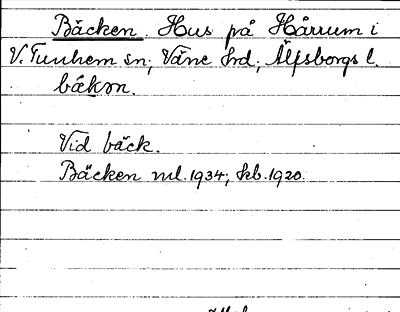 Bäcken. Hus på Hårrum i
V. Tunhem sn; Väne hrd; Älfsborgs l.
bäkən.
Vid bäck.
Bäcken ml. 1934; kb. 1920.